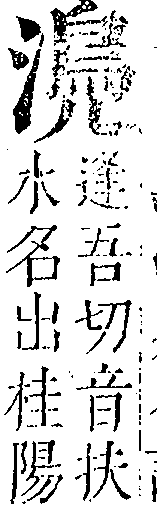 逢吾切音扶
水名出桂陽